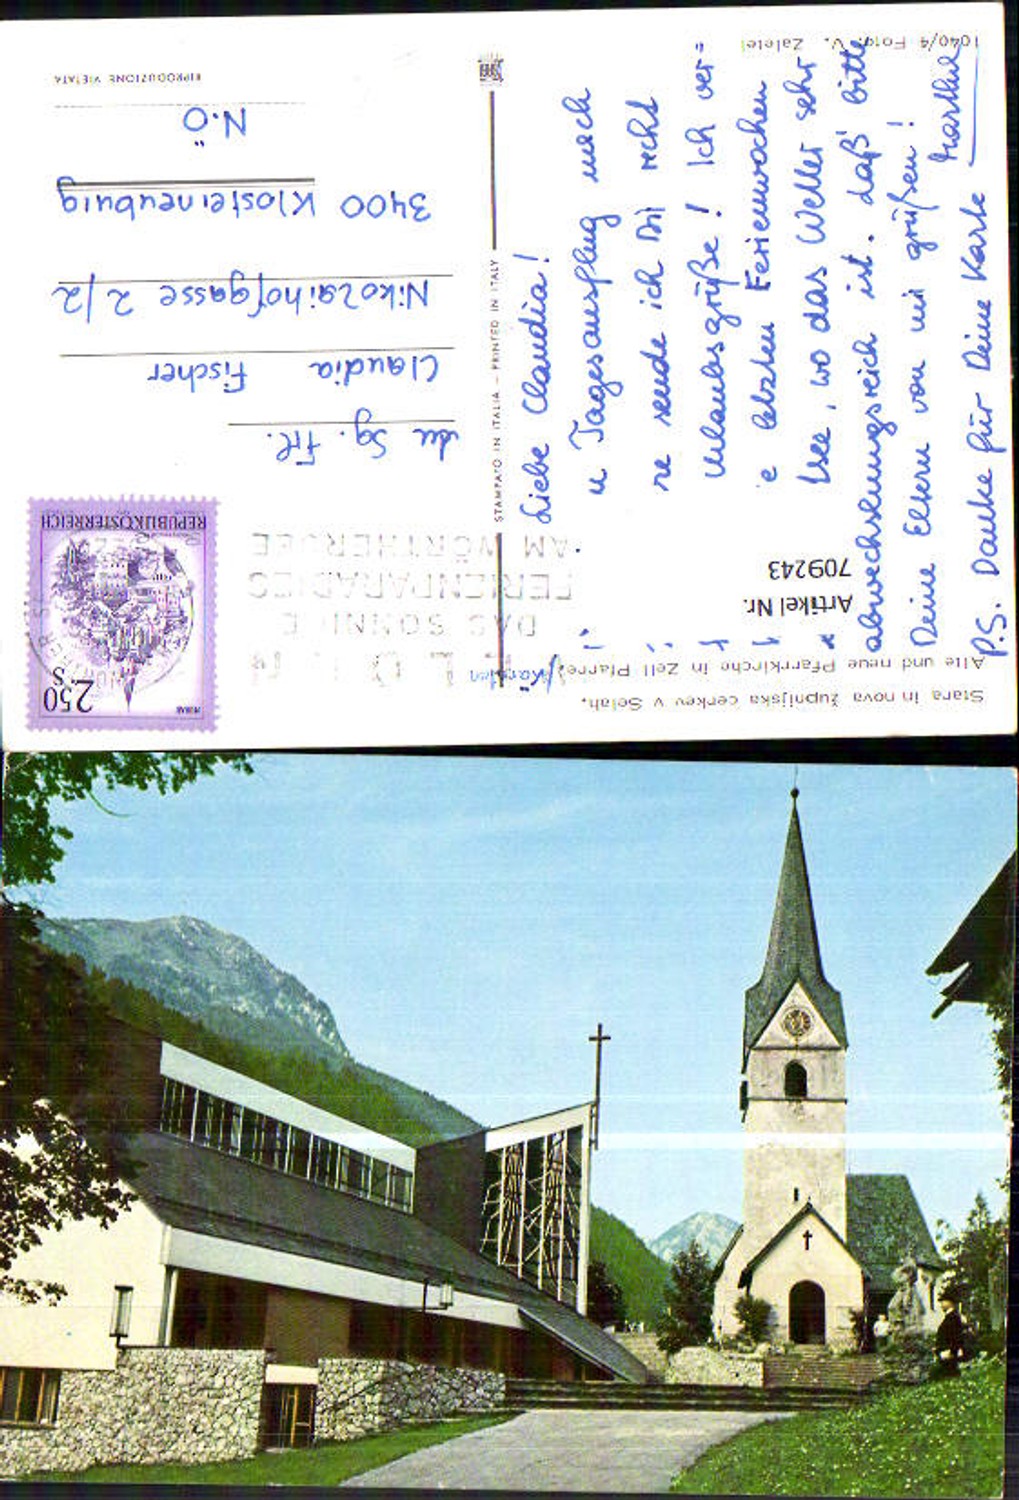 Stara in nova župnijska cerkev v Selah.
Alte und neue Pfarrkirche in Zell Pfarre/Kärnten
Artikel Nr.
709243
1040/4 Foto: V. Zaletel
STAMPATO IN ITALIA – PRINTED IN ITALY
RIPRODUZIONE VIETATA
REPUBLIK ÖSTERREICH
2.50
S
MURAU
DAS SONNIGE
FERIENPARADIES
AM WÖRTHERSEE
Sg. Frl.
Claudia Fischer
Nikolaihofgasse 2/2
3400 Klosterneuburg
N.Ö
Liebe Claudia!
Tagesausflug nach
sende ich Dir recht
Urlaubsgrüße! Ich ver=
letzten Ferienwochen
, wo das Wetter sehr
abwechslungsreich ist. daß bitte
Deine Eltern von mir grüßen!
P.S. Danke für Deine Karte